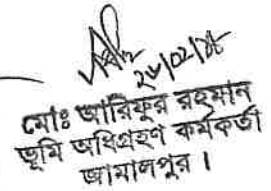 মোঃ আরিফুর রহমান
ভূমি অধিগ্রহণ কর্মকর্তা
জামালপুর।